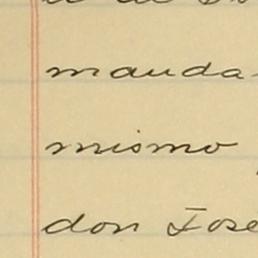 manda
mismo
don Jose